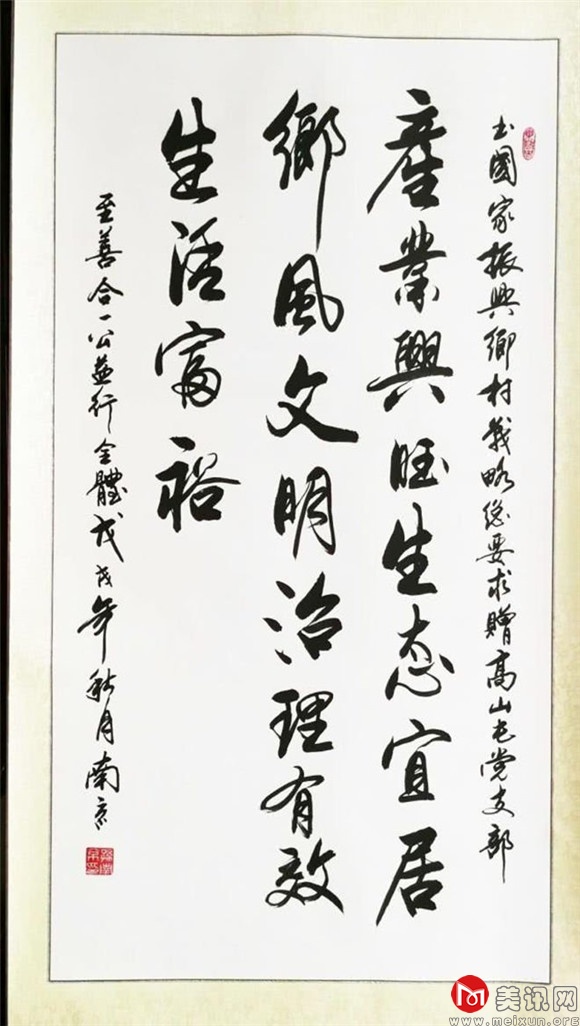 书國家振興鄉村戰略总要求贈高山屯党支部
產業興旺生态宜居
鄉風文明治理有效
生活富裕
至善合一公益行全體戊戌年秋月南京
美讯网
www.meixun.org